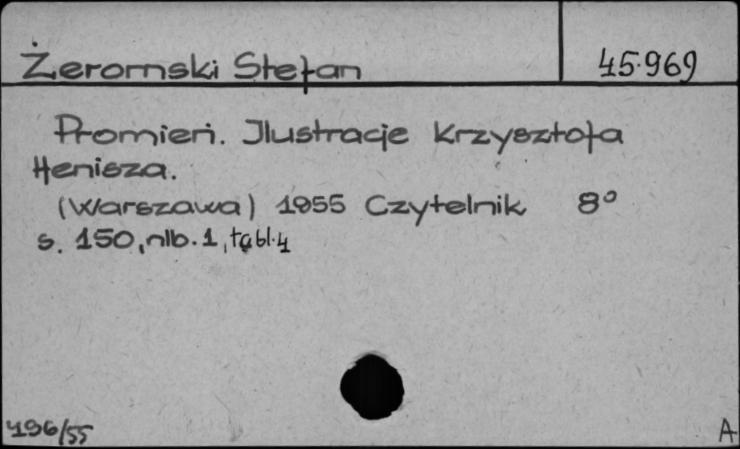 Żeromski Stefan 45.969
Promień. Ilustracje Krzysztofa
Henisza.
(Warszawa) 1955 Czytelnik 8°
s. 150, nlb. 1, tabl. 4
496/55 A